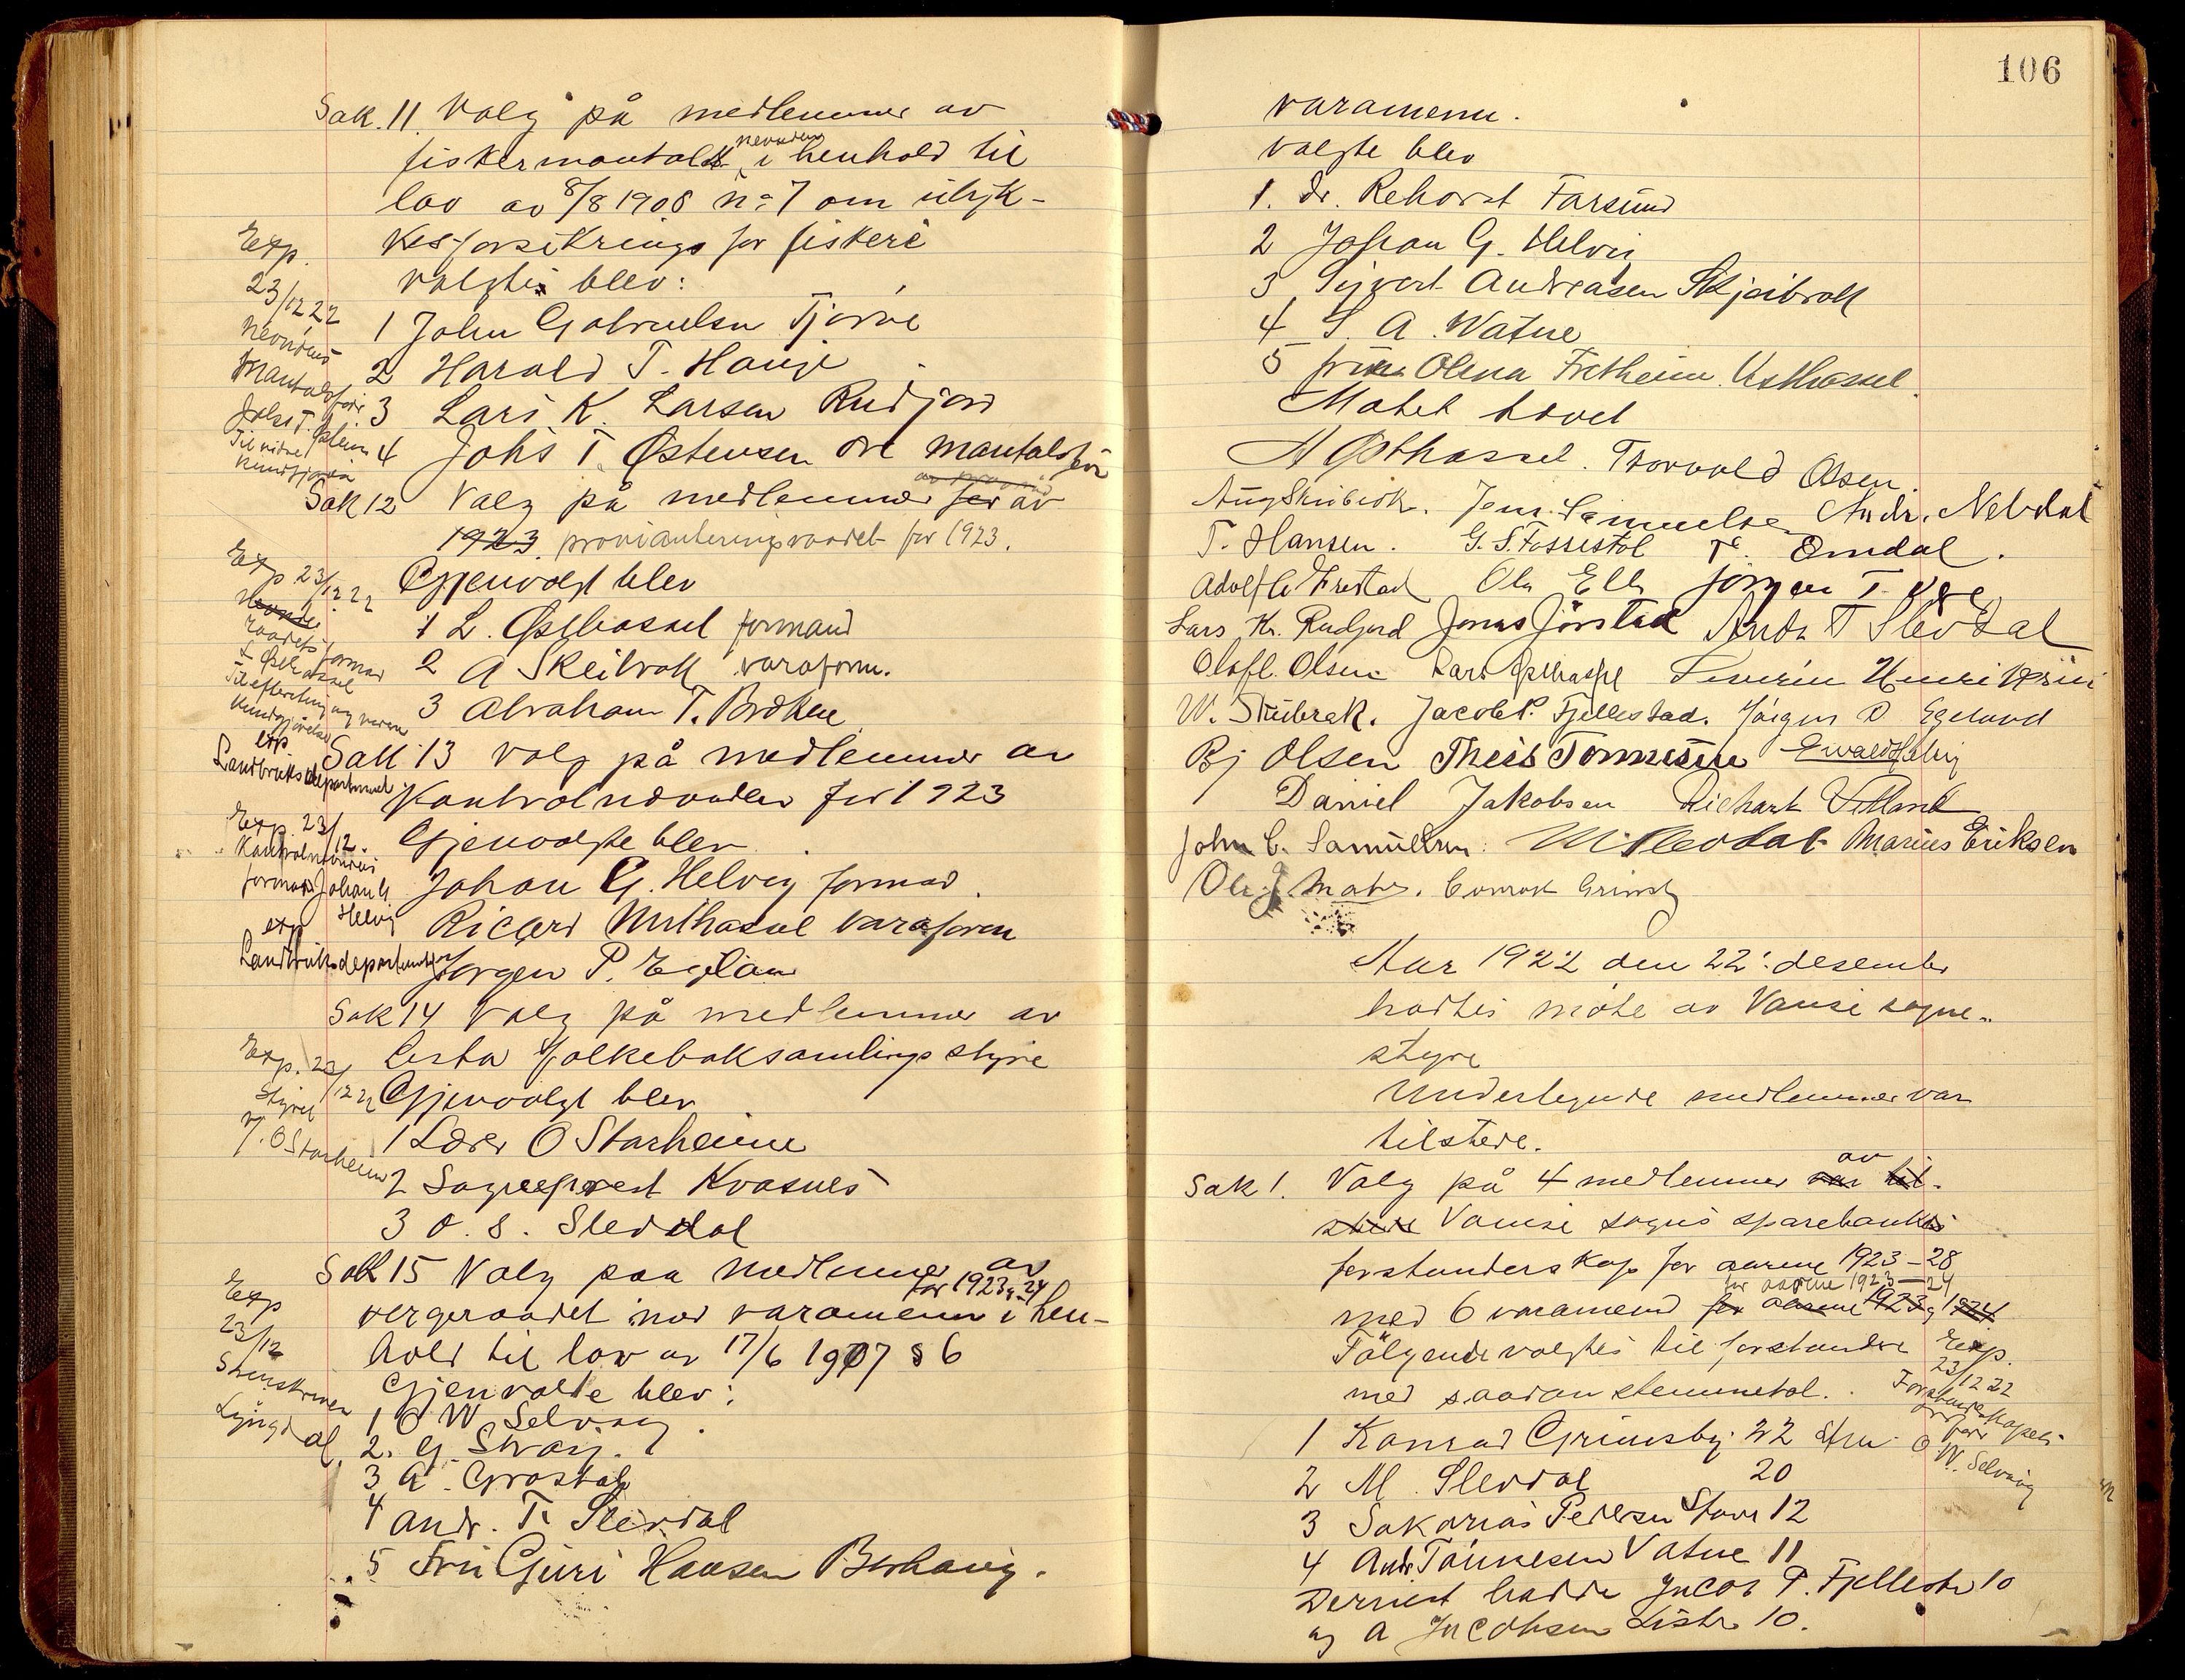 Sak. 11. Valg på medlemmer av
fiskermantals nevnden i henhold til
lov av 8/8 1908 No 7 om ulyk-
kesforsikrings for fiskere
valgtes blev:
1 John Gabrielsen Tjørve
2 Harald T. Hauge
3 Lars K. Larsen Rudjord
4 Johs T. Østensen Ore mantalsför
Exp.
23/12 22
Nevndens
mantalsför
Johs T. Østens
Til videre
kundgjøring
Sak 12 Valg på medlemmer for av
1923. provianteringsraadet for 1923.
Gjenvalgt blev
1 L. Østhassel formand
2 A Skeibrok varaform.
3 Abraham T. Brokne
Exp 23/12 22
Nevnde
raadets formand
L Østhassel
Til efterretning og videre
Kundgjørelse
exp
Landbruksdepartementet
Sak 13 valg på medlemmer av
Kontrolnævnden for 1923
Gjenvalgte blev
Johan G. Helvig formand.
Ricard Midhassel varaform
Jørgen P. Egeland
Exp. 23/12.
Kontrolnevndens
formand Johan G
Helvig
exp
Landbruksdepartementet
Sak 14 Valg på medlemmer av
Lista folkeboksamlings styre
Gjenvalgt blev
1 Lærer O Starheim
2 Sogneprest Kvasnes
3 O. S. Slevdal
Exp. 23/12 22
Styret
v/. O Starheim
Sak 15 Valg paa medlemmer av
for 1923-24
vergeraadet med varamenn i hen-
hold til lov av 17/6 1907 § 6
Gjenvalte blev:
1 O W Selvaag.
2. G. Svaij.
3 A. Grostøl
4 Andr. T. Slevdal
5 Fru Guri Hansen Borhaug.
Exp
23/12
Sorenskriveren
Lyngdal
106
varamenn.
valgte blev
1. Dr. Rehorst Farsund
2 Johan G. Helvig
3 Sigvart Andreasen Skjeibrok
4 S. A. Watne
5 frue Olena Fretheim Østhassel.
Møtet hævet
A Østhassel. Torvald Olsen.
Aug Skeibrok. Jens Samuelsen Andr. Nebdal
T. Hansen. G. S. Fossestøl T. Omdal.
Adolf Frestad Ole Elle Jørgen T. Ore
Lars K. Rudjord Jonas Jörstad Andr T Slevdal
Olaf L. Olsen Lars Østhassel Severin Henriksen
W. Skeibrok. Jacob P. Fjellestad. Jørgen P Egeland
Bj Olsen Theis Tønnesen Ewald Helvig
Daniel Jakobsen Richart Vetland
John C. Samuelsen. M Slevdal Marius Eriksen
Ole J. Mabr. Conrad Grimsby
Aar 1922 den 22. desember
holdtes møte av Vanse sogne-
styre
Undertegnede medlemmer var
tilstede.
Sak 1. Valg på 4 medlemmer var av til-
stede Vanse sogns sparebanks
forstanderskap for aarene 1923-28
for aarene 1923-24
med 6 varamend for aarene 1923 og 1924.
Følgende valgtes til forstandere
med saadan stemmetal.
1 Konrad Grimsby 22 stm
2 M. Slevdal 20
3 Sakarias Pedersen Stave 12
4 Andr Tønnesen Vatne 11
Dernest hadde Jacob P. Fjellesta 10
og A Jacobsen Lista 10.
Exp.
23/12 22
Forstanderskapets
form
O W. Selvaag